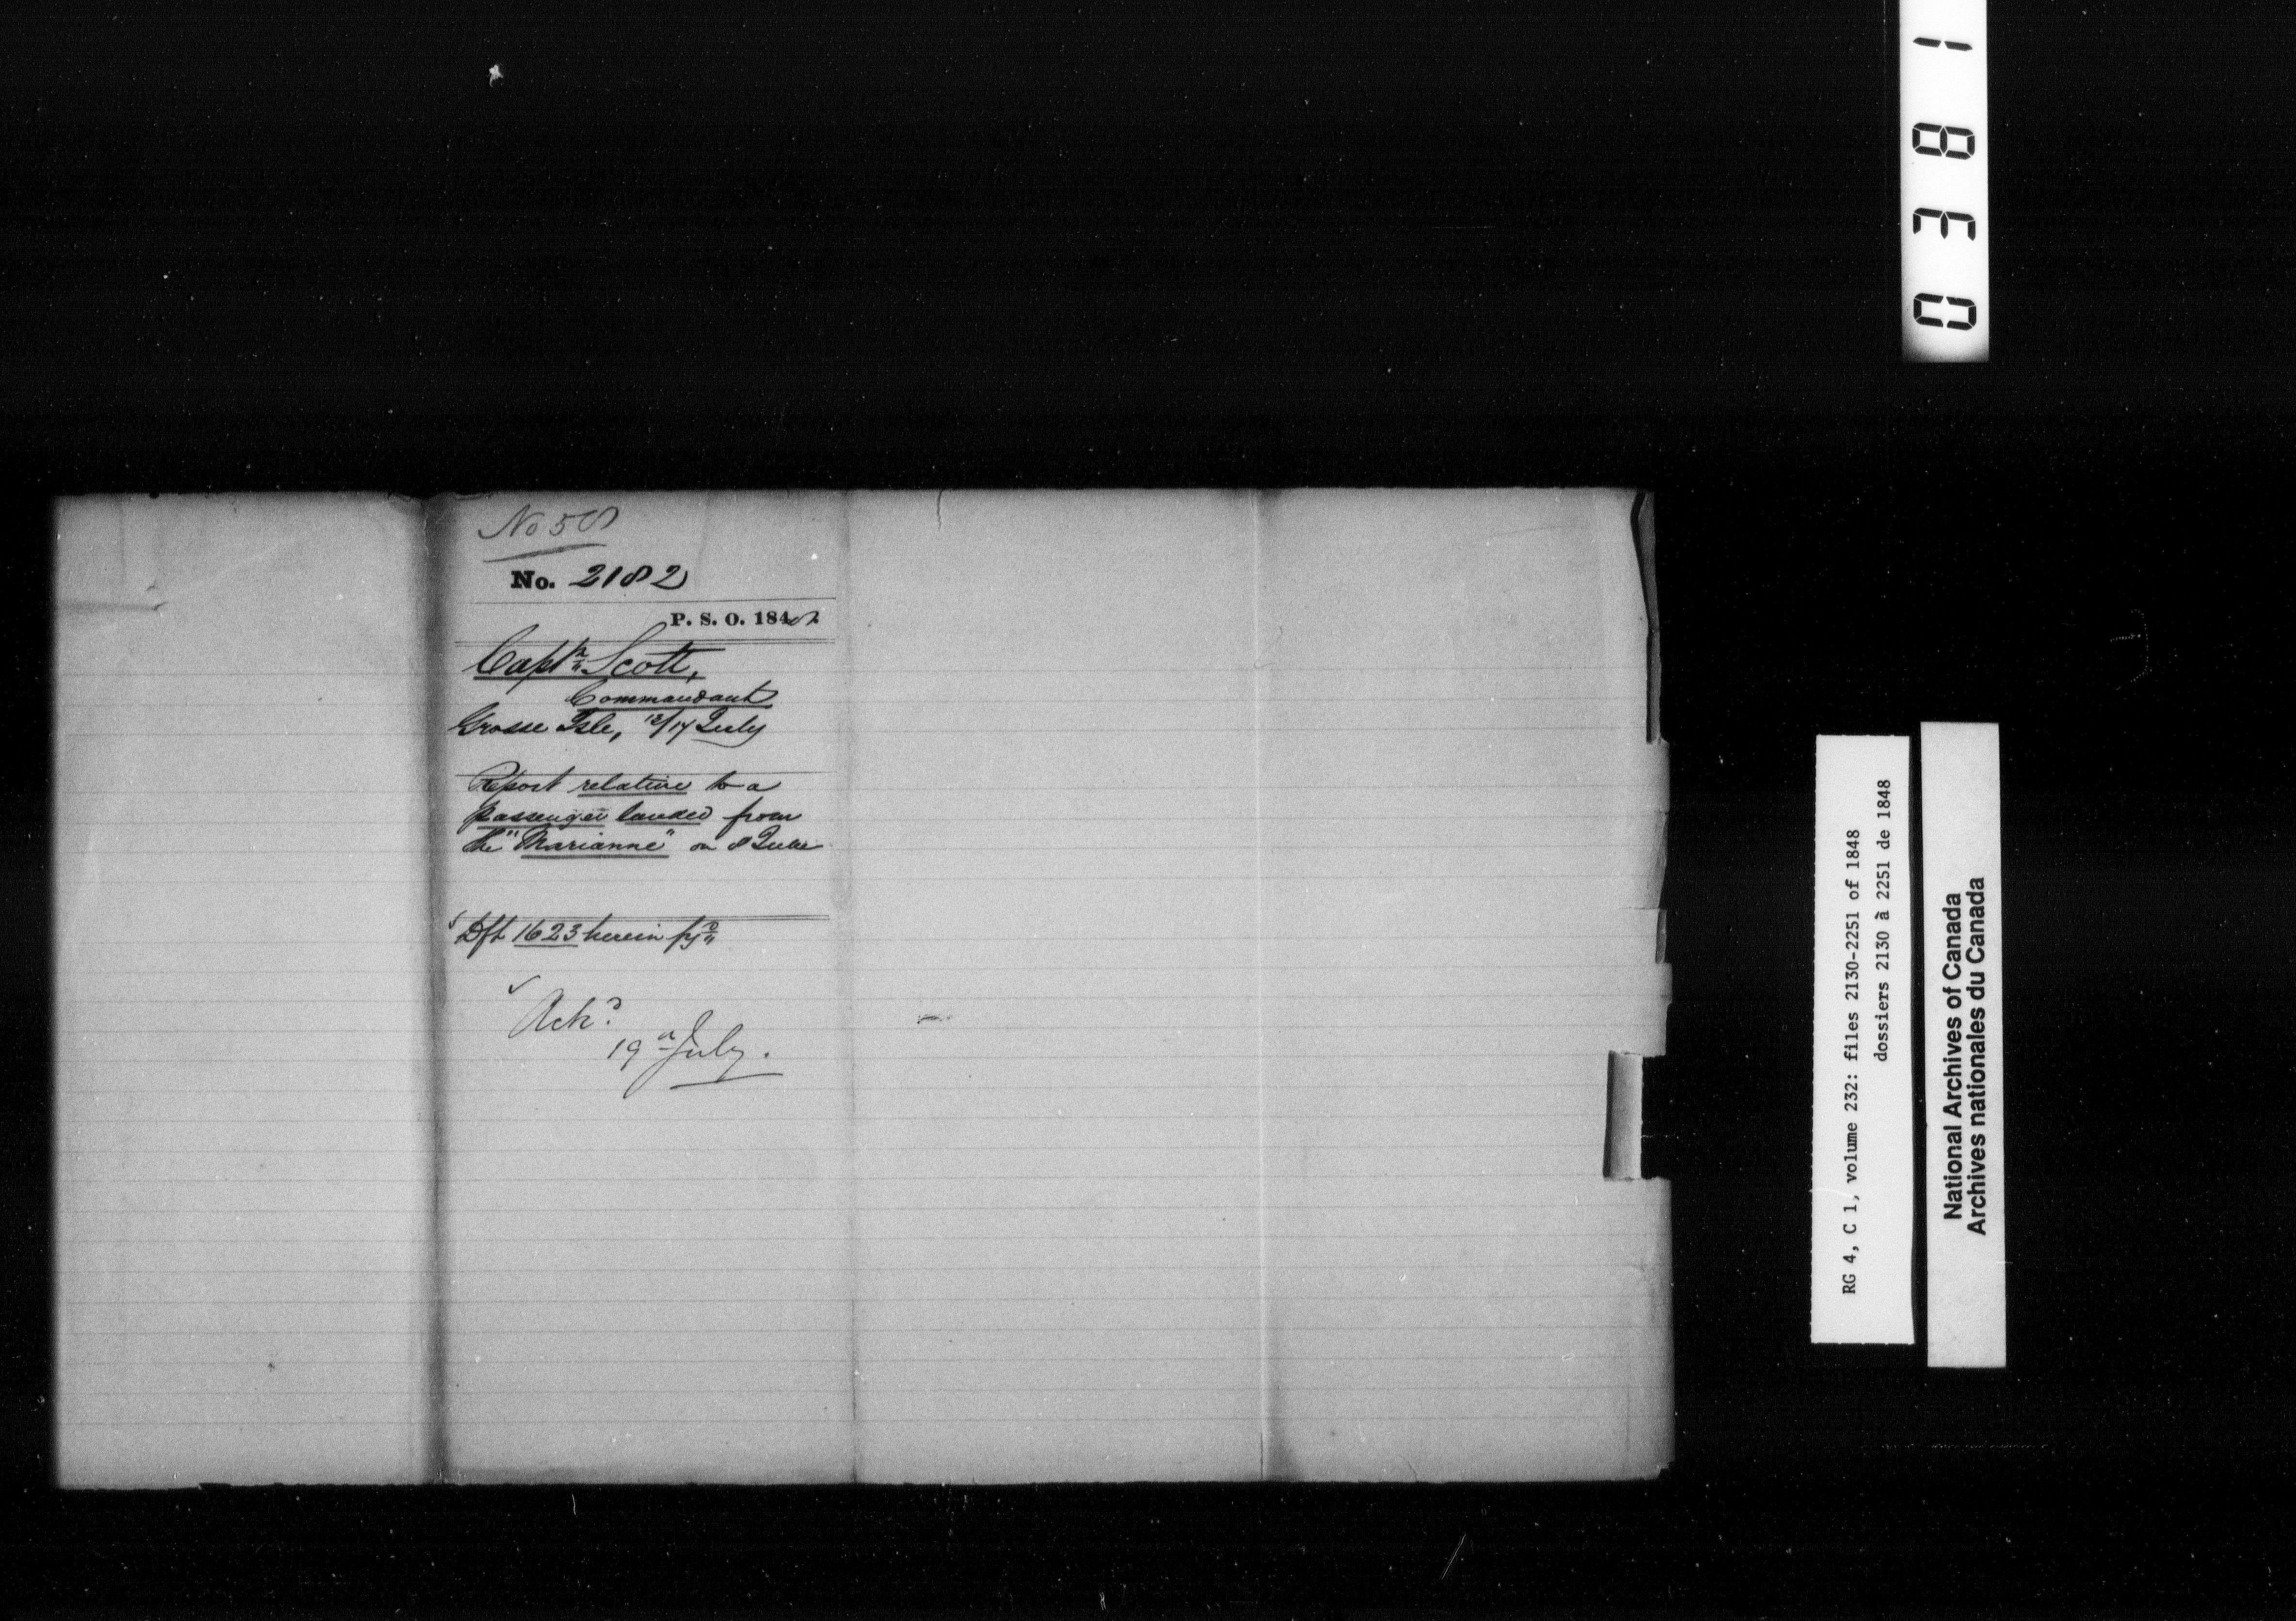 No 58
No. 2182
P. S. O. 1848
Captn Scott,
Commandant
Grosse Isle, 12/14 July
Report relative to a
passenger landed from
the "Marianne" on 8 June
Dft 1623 herein
Ackd
19th July.
0381
RG 4, C 1, volume 232: files 2130-2251 of 1848
dossiers 2130 à 2251 de 1848
National Archives of Canada
Archives nationales du Canada